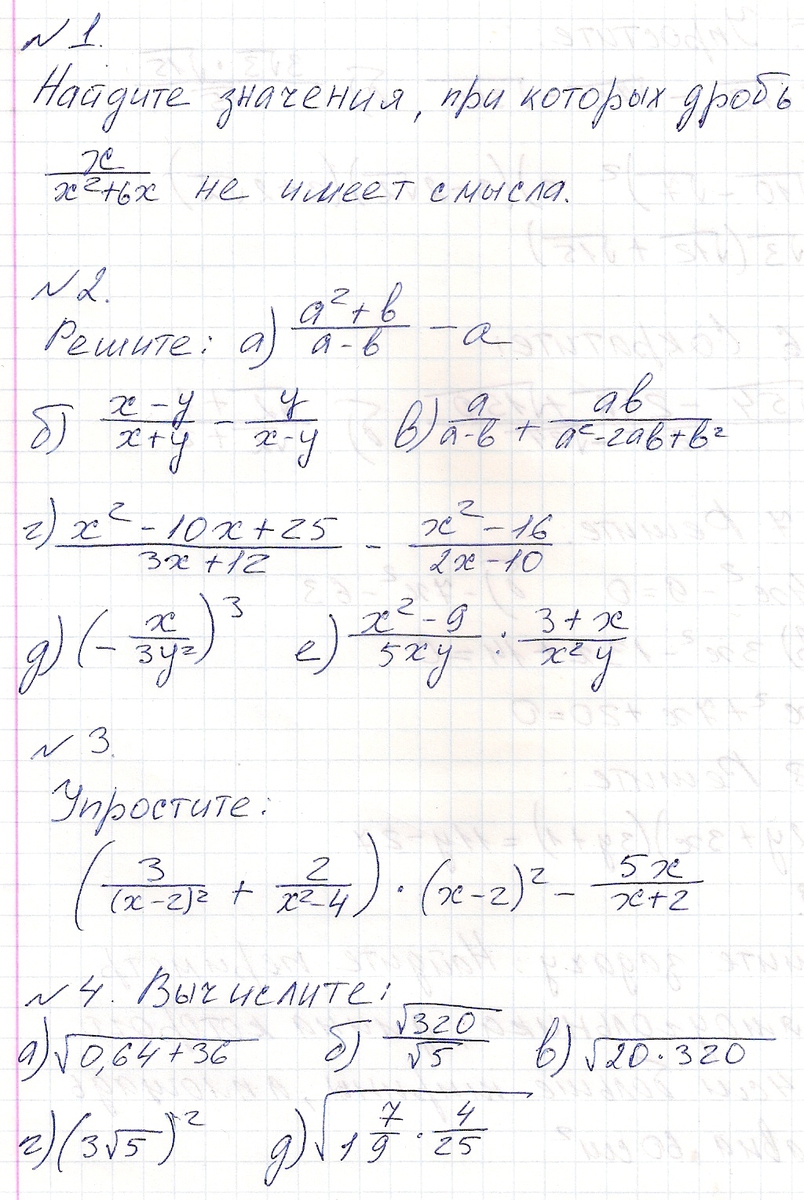 № 1.
Найдите значения, при которых дробь
x/(x²+6x) не имеет смысла.
№ 2.
Решите: а) (a²+b)/(a-b) - a
б) (x-y)/(x+y) - y/(x-y) в) a/(a-b) + ab/(a²-2ab+b²)
г) (x²-10x+25)/(3x+12) - (x²-16)/(2x-10)
д) (-x/(3y²))³ е) (x²-9)/(5xy) : (3+x)/(x²y)
№ 3.
Упростите:
(3/(x-2)² + 2/(x²-4)) · (x-2)² - 5x/(x+2)
№ 4. Вычислите:
а) √(0,64+36) б) √320/√5 в) √(20·320)
г) (3√5)² д) √(1 7/9 · 4/25)